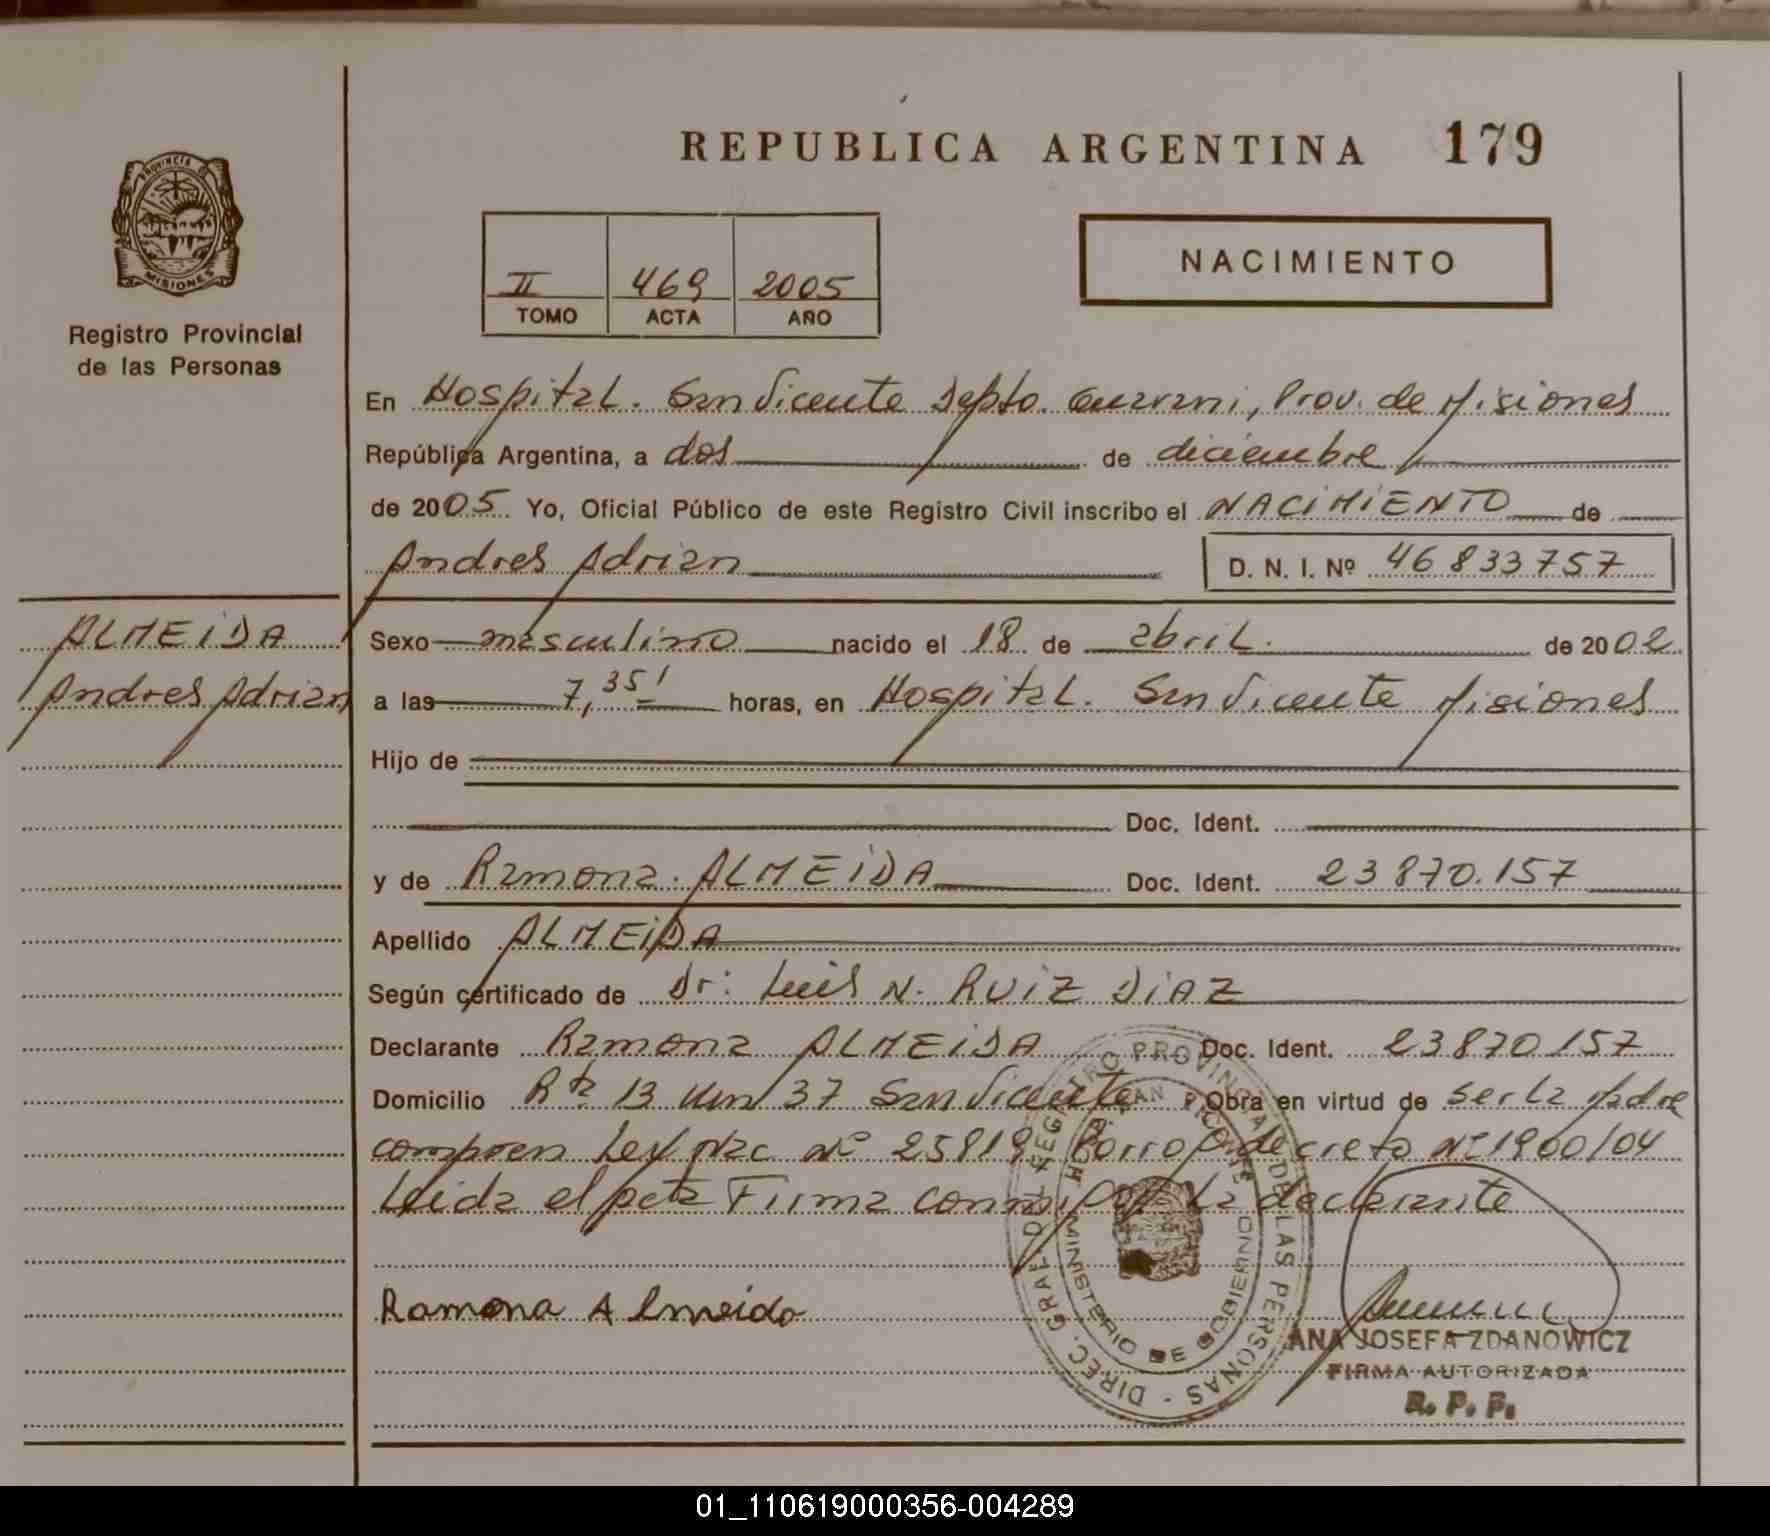 REPUBLICA ARGENTINA 179
PROVINCIA DE
MISIONES
Registro Provincial
de las Personas
II 469 2005
TOMO ACTA AÑO
NACIMIENTO
En Hospital. San Vicente Depto. Guarani, Prov. de Misiones
República Argentina, a dos de diciembre
de 2005 Yo, Oficial Público de este Registro Civil inscribo el NACIMIENTO de
Andres Adrian D. N. I. Nº 46833757
ALMEIDA
Andres Adrian
Sexo masculino nacido el 18 de abril. de 2002
a las 7,35' horas, en Hospital. San Vicente Misiones
Hijo de
Doc. Ident.
y de Ramona. ALMEIDA Doc. Ident. 23870.157
Apellido ALMEIDA
Según certificado de Dr: Luis N. RUIZ DIAZ
Declarante Ramona ALMEIDA Doc. Ident. 23870157
Domicilio Rta 13 Km 37 San Vicente Obra en virtud de ser la Madre
Ley Nac Nº 25819 decreto Nº 1900/04
Leida el acta Firma conmigo la declarante
Ramona Almeida
DIREC. GRAL. DEL REGISTRO PROVINCIAL DE LAS PERSONAS -
MINISTERIO DE GOBIERNO
ANA JOSEFA ZDANOWICZ
FIRMA AUTORIZADA
R. P. P.
01_110619000356-004289